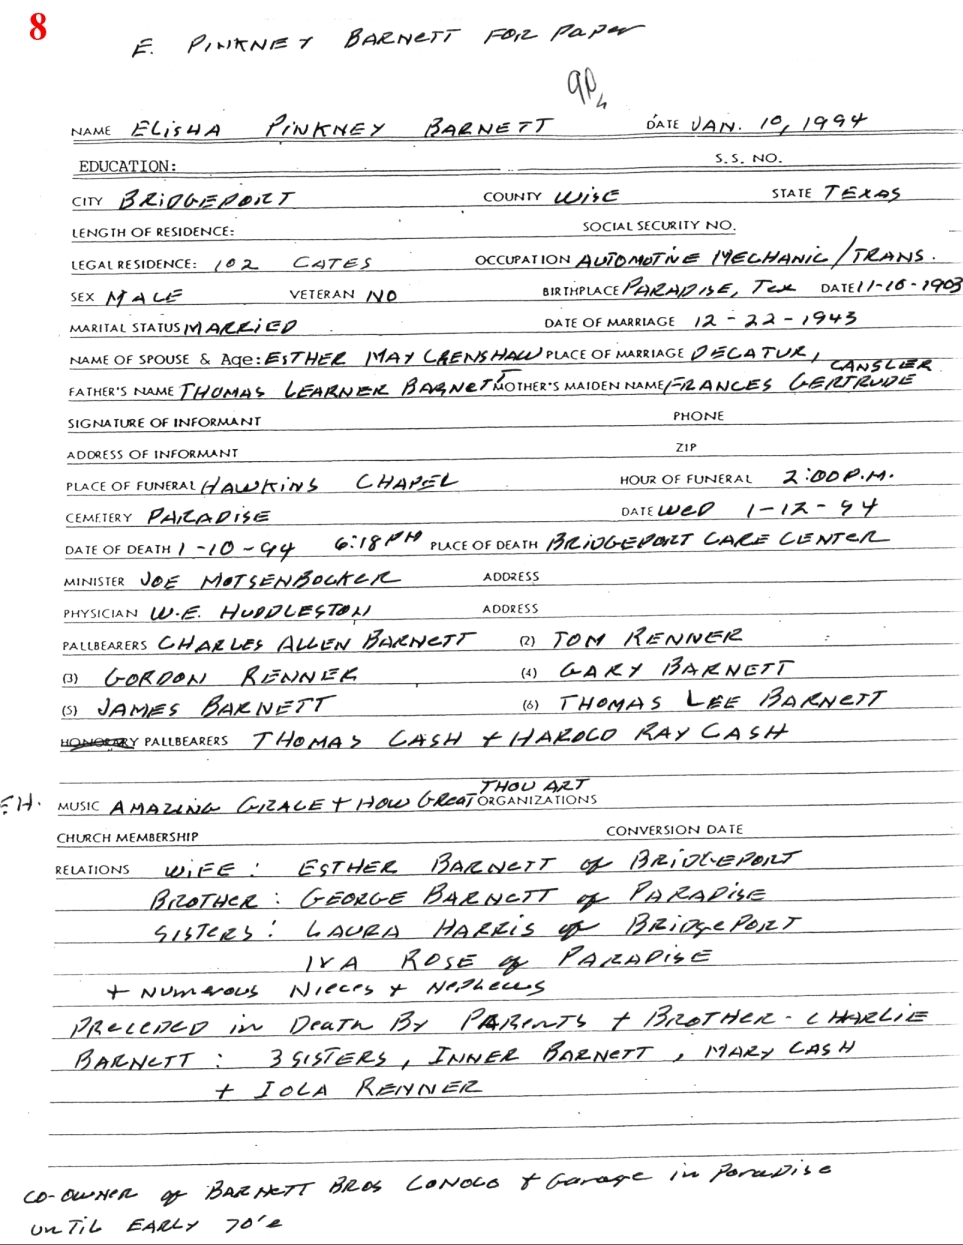 8
E. PINKNEY BARNETT FOR Paper
NAME ELISHA PINKNEY BARNETT DATE JAN. 10, 1994
EDUCATION: S.S. NO.
CITY BRIDGEPORT COUNTY WISE STATE TEXAS
LENGTH OF RESIDENCE: SOCIAL SECURITY NO.
LEGAL RESIDENCE: 102 CATES OCCUPATION AUTOMOTIVE MECHANIC/TRANS.
SEX MALE VETERAN NO BIRTHPLACE PARADISE, TEX DATE 11-16-1903
MARITAL STATUS MARRIED DATE OF MARRIAGE 12-22-1943
NAME OF SPOUSE & Age: ESTHER MAY CRENSHAW PLACE OF MARRIAGE DECATUR,
FATHER'S NAME THOMAS LEARNER BARNETT MOTHER'S MAIDEN NAME FRANCES GERTRUDE CANSLER
SIGNATURE OF INFORMANT PHONE
ADDRESS OF INFORMANT ZIP
PLACE OF FUNERAL HAWKINS CHAPEL HOUR OF FUNERAL 2:00 P.M.
CEMETERY PARADISE DATE WED 1-12-94
DATE OF DEATH 1-10-94 6:18 PM PLACE OF DEATH BRIDGEPORT CARE CENTER
MINISTER JOE MOTSENBOCKER ADDRESS
PHYSICIAN W.E. HUDDLESTON ADDRESS
PALLBEARERS CHARLES ALLEN BARNETT (2) TOM RENNER
(3) GORDON RENNER (4) GARY BARNETT
(5) JAMES BARNETT (6) THOMAS LEE BARNETT
HONORARY PALLBEARERS THOMAS CASH + HAROLD RAY CASH
MUSIC AMAZING GRACE + HOW GREAT THOU ART ORGANIZATIONS
CHURCH MEMBERSHIP CONVERSION DATE
RELATIONS WIFE: ESTHER BARNETT of BRIDGEPORT
BROTHER: GEORGE BARNETT of PARADISE
SISTERS: LAURA HARRIS of BRIDGEPORT
IVA ROSE of PARADISE
+ NUMEROUS NIECES + NEPHEWS
PRECEDED in DEATH BY PARENTS + BROTHER - CHARLIE
BARNETT: 3 SISTERS, INNER BARNETT, MARY CASH
+ IOLA RENNER
CO-OWNER of BARNETT BROS CONOCO + Garage in Paradise
UNTIL EARLY 70's